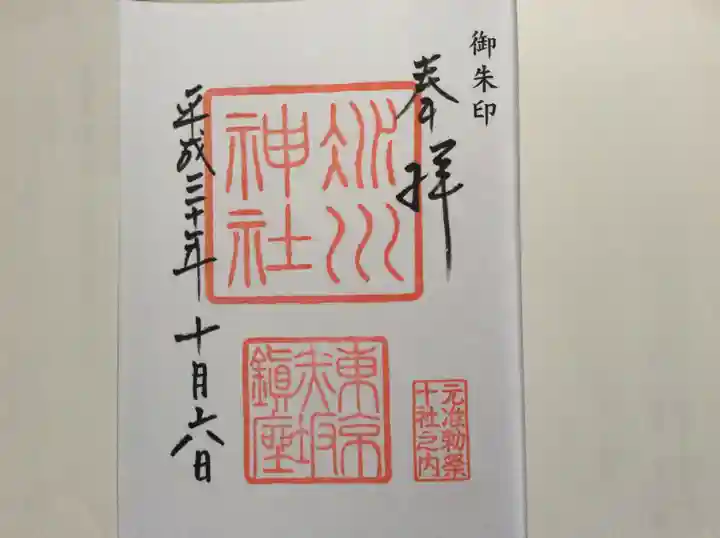 御朱印
奉拝
氷川
神社
元准勅祭
十社之内
東京
赤坂
鎮座
平成三十年十月六日